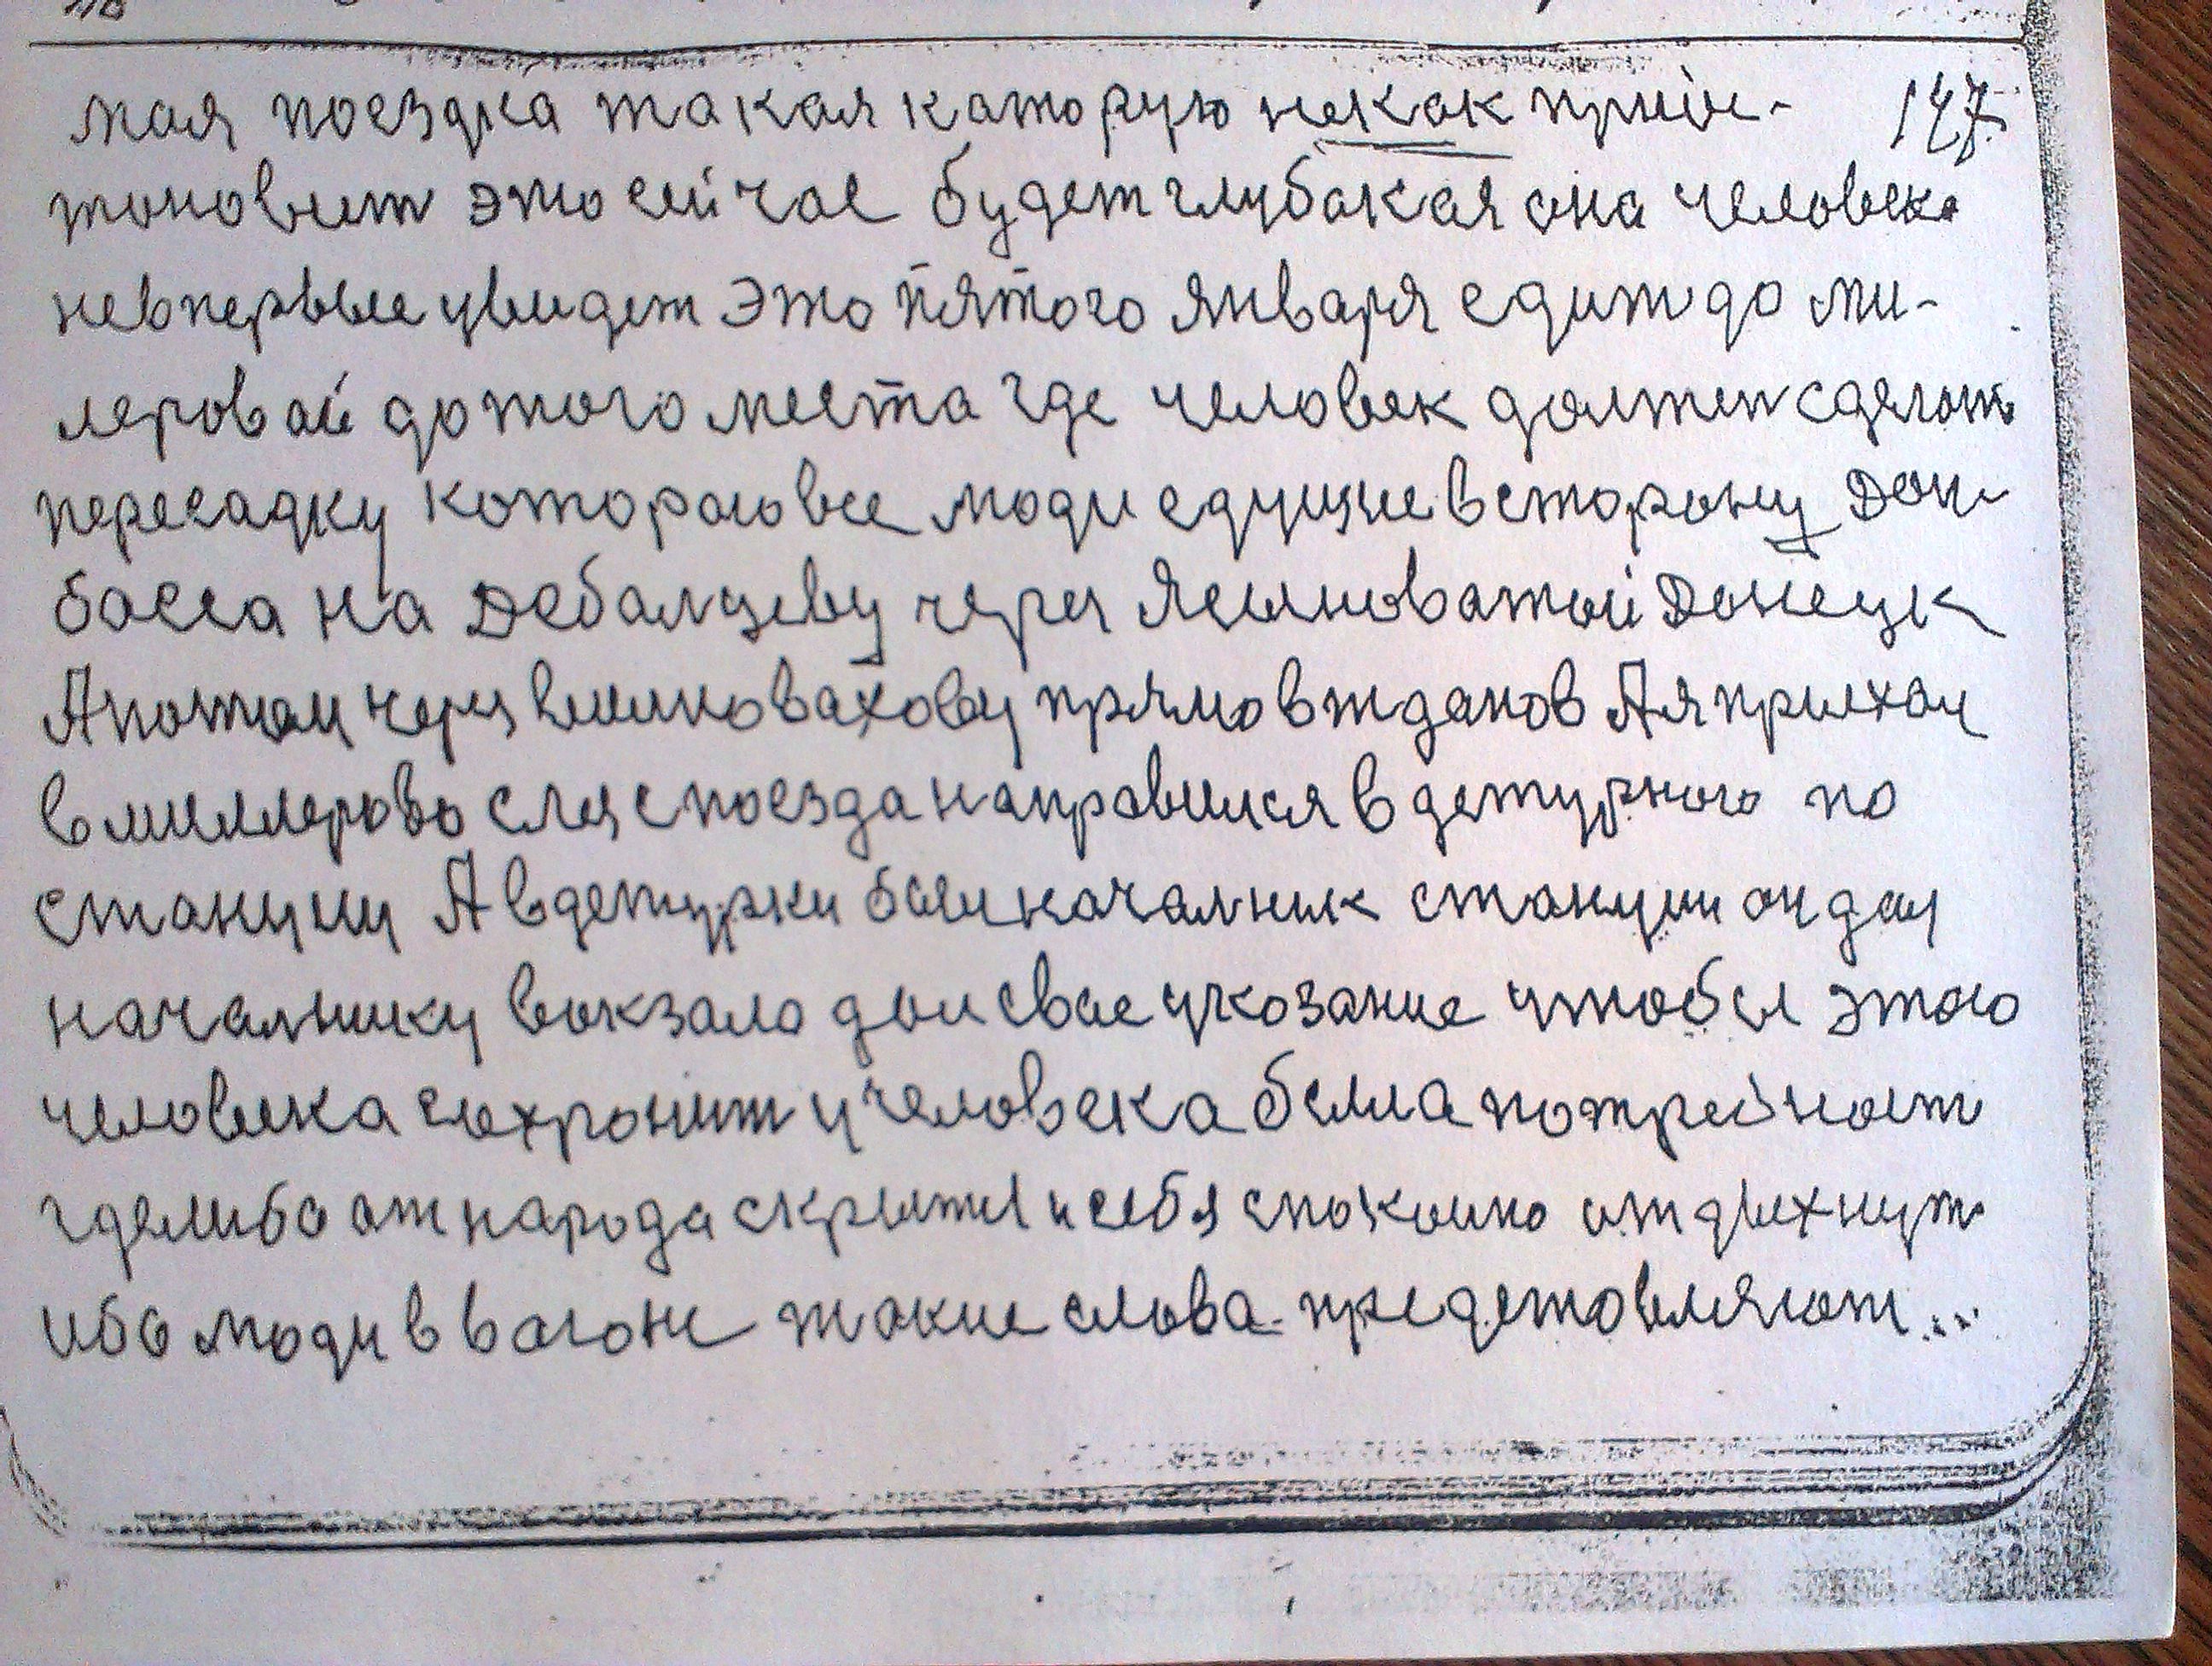 147
моя поездка такая каторую некак приос-
тоновит это сейчас будет глубакая она человека
невпервые увидет это пятого января едит до ми-
леровай до того места где человек должен сделат
пересадку которого все люди едущие в сторону Дон-
басса на Дебалцеву через Ясиноватой Донецк
А потом через волновахову прямо в жданов А я приехау
в миллерово слез с поезда направился в дежурного по
станции А в дежурки быи началник станции он дау
началнику вокзало дои свое укозание чтобы этого
человека сохронит у человека была потребност
где либо от народа скрытн себя спокоино отдыхнут
ибо люди в вогоне такие слова предстовляют...